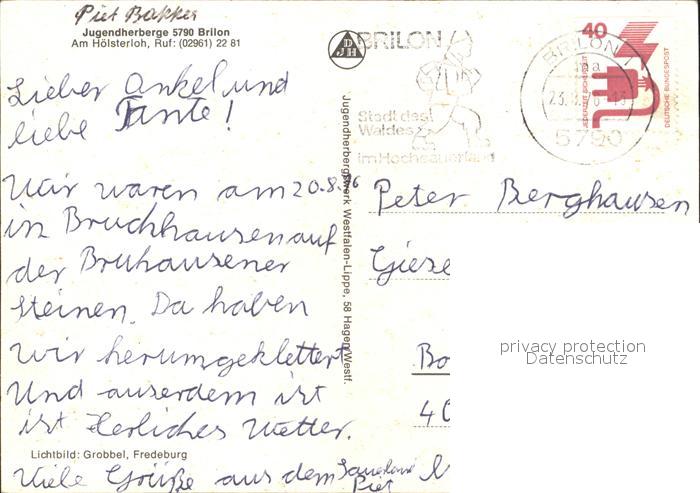 Piet Bakker
Jugendherberge 5790 Brilon
Am Hölsterloh, Ruf: (02961) 22 81
Lieber onkel und
liebe Tante!
Wir waren am 20.8.76
in Bruchhausen auf
der Bruhausener
steinen. Da haben
wir herumgeklettert
Und auserdem ist
ist Herliches Wetter.
Lichtbild: Grobbel, Fredeburg
Viele Grüße aus dem Sauerland
Piet
Jugendherbergswerk Westfalen-Lippe, 58 Hagen/Westf.
DJH
BRILON
Stadt des
Waldes
im Hochsauerland
BRILON 1
5790
40
JEDERZEIT SICHERHEIT
DEUTSCHE BUNDESPOST
Peter Berghausen
Giese
Bo
40
privacy protection
Datenschutz